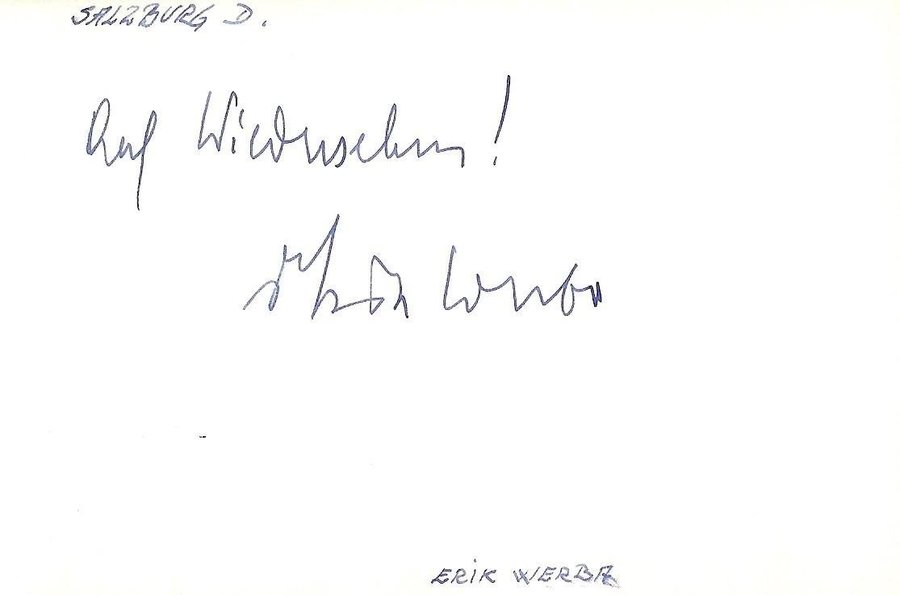 SALZBURG D.
Auf Wiedersehen!
Erik Werba
ERIK WERBA